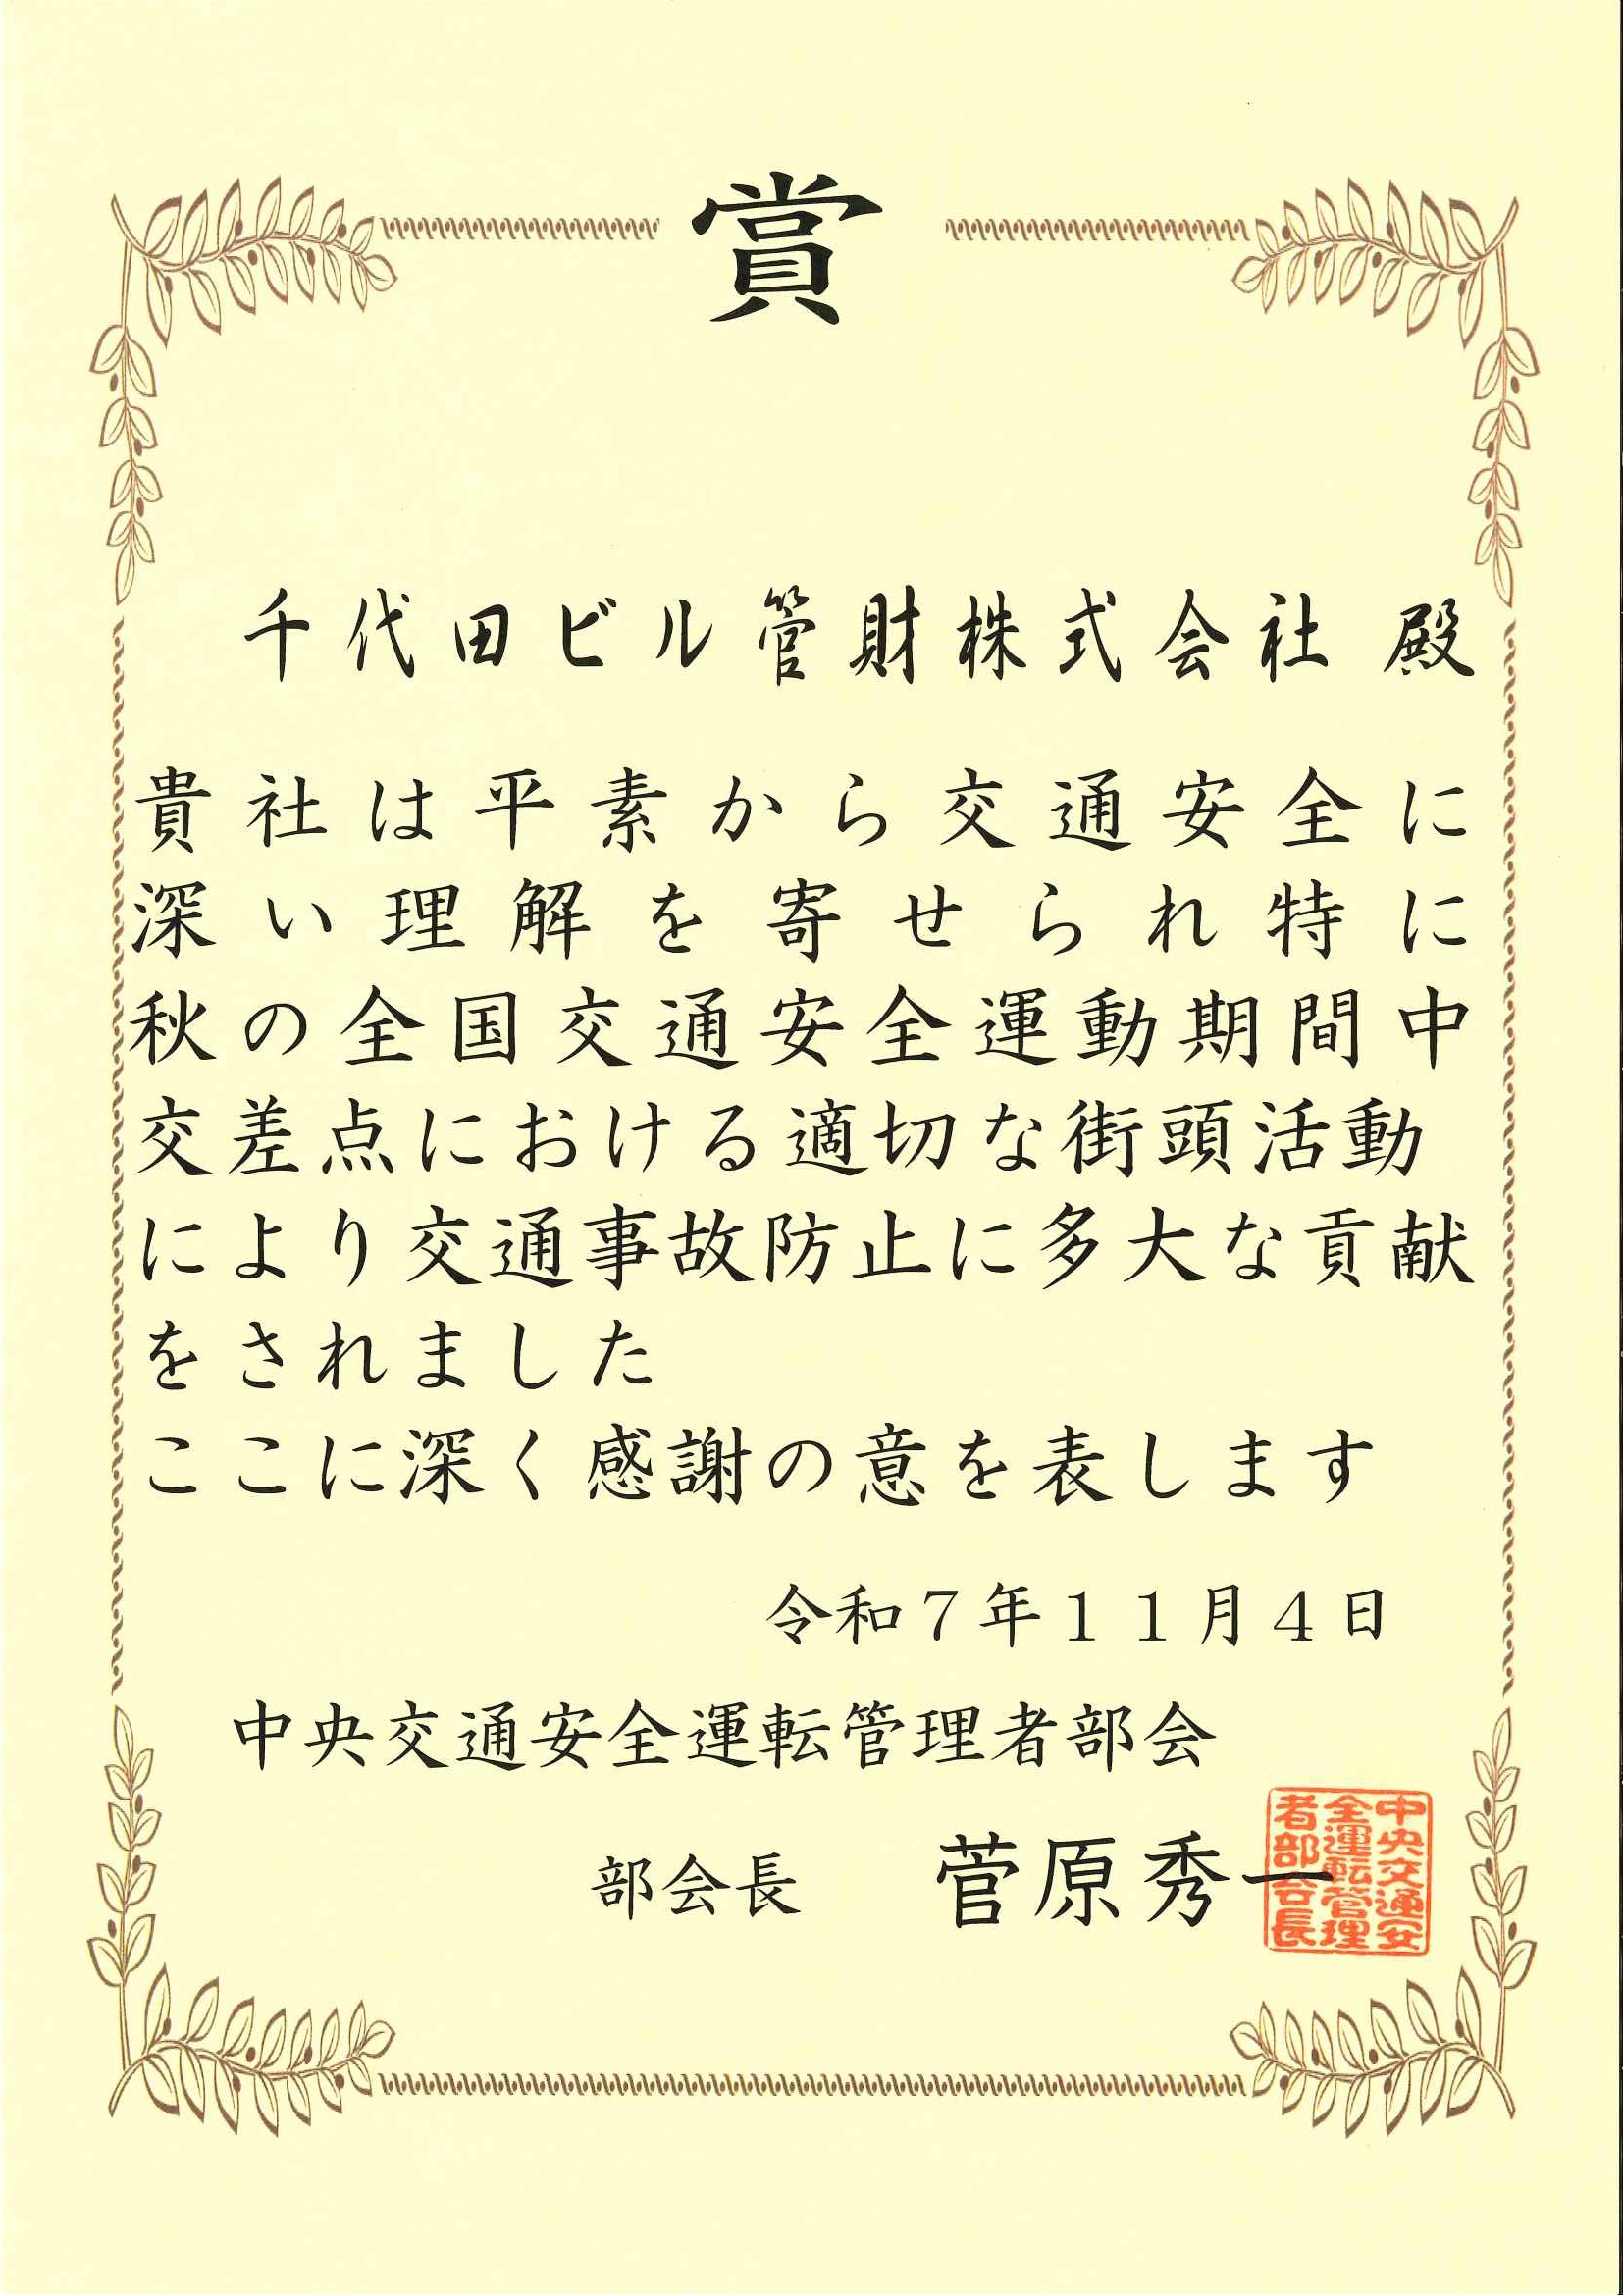 賞
千代田ビル管財株式会社 殿
貴社は平素から交通安全に
深い理解を寄せられ特に
秋の全国交通安全運動期間中
交差点における適切な街頭活動
により交通事故防止に多大な貢献
をされました
ここに深く感謝の意を表します
令和７年１１月４日
中央交通安全運転管理者部会
部会長 菅原秀一
中央交通安
全運転管理
者部会長